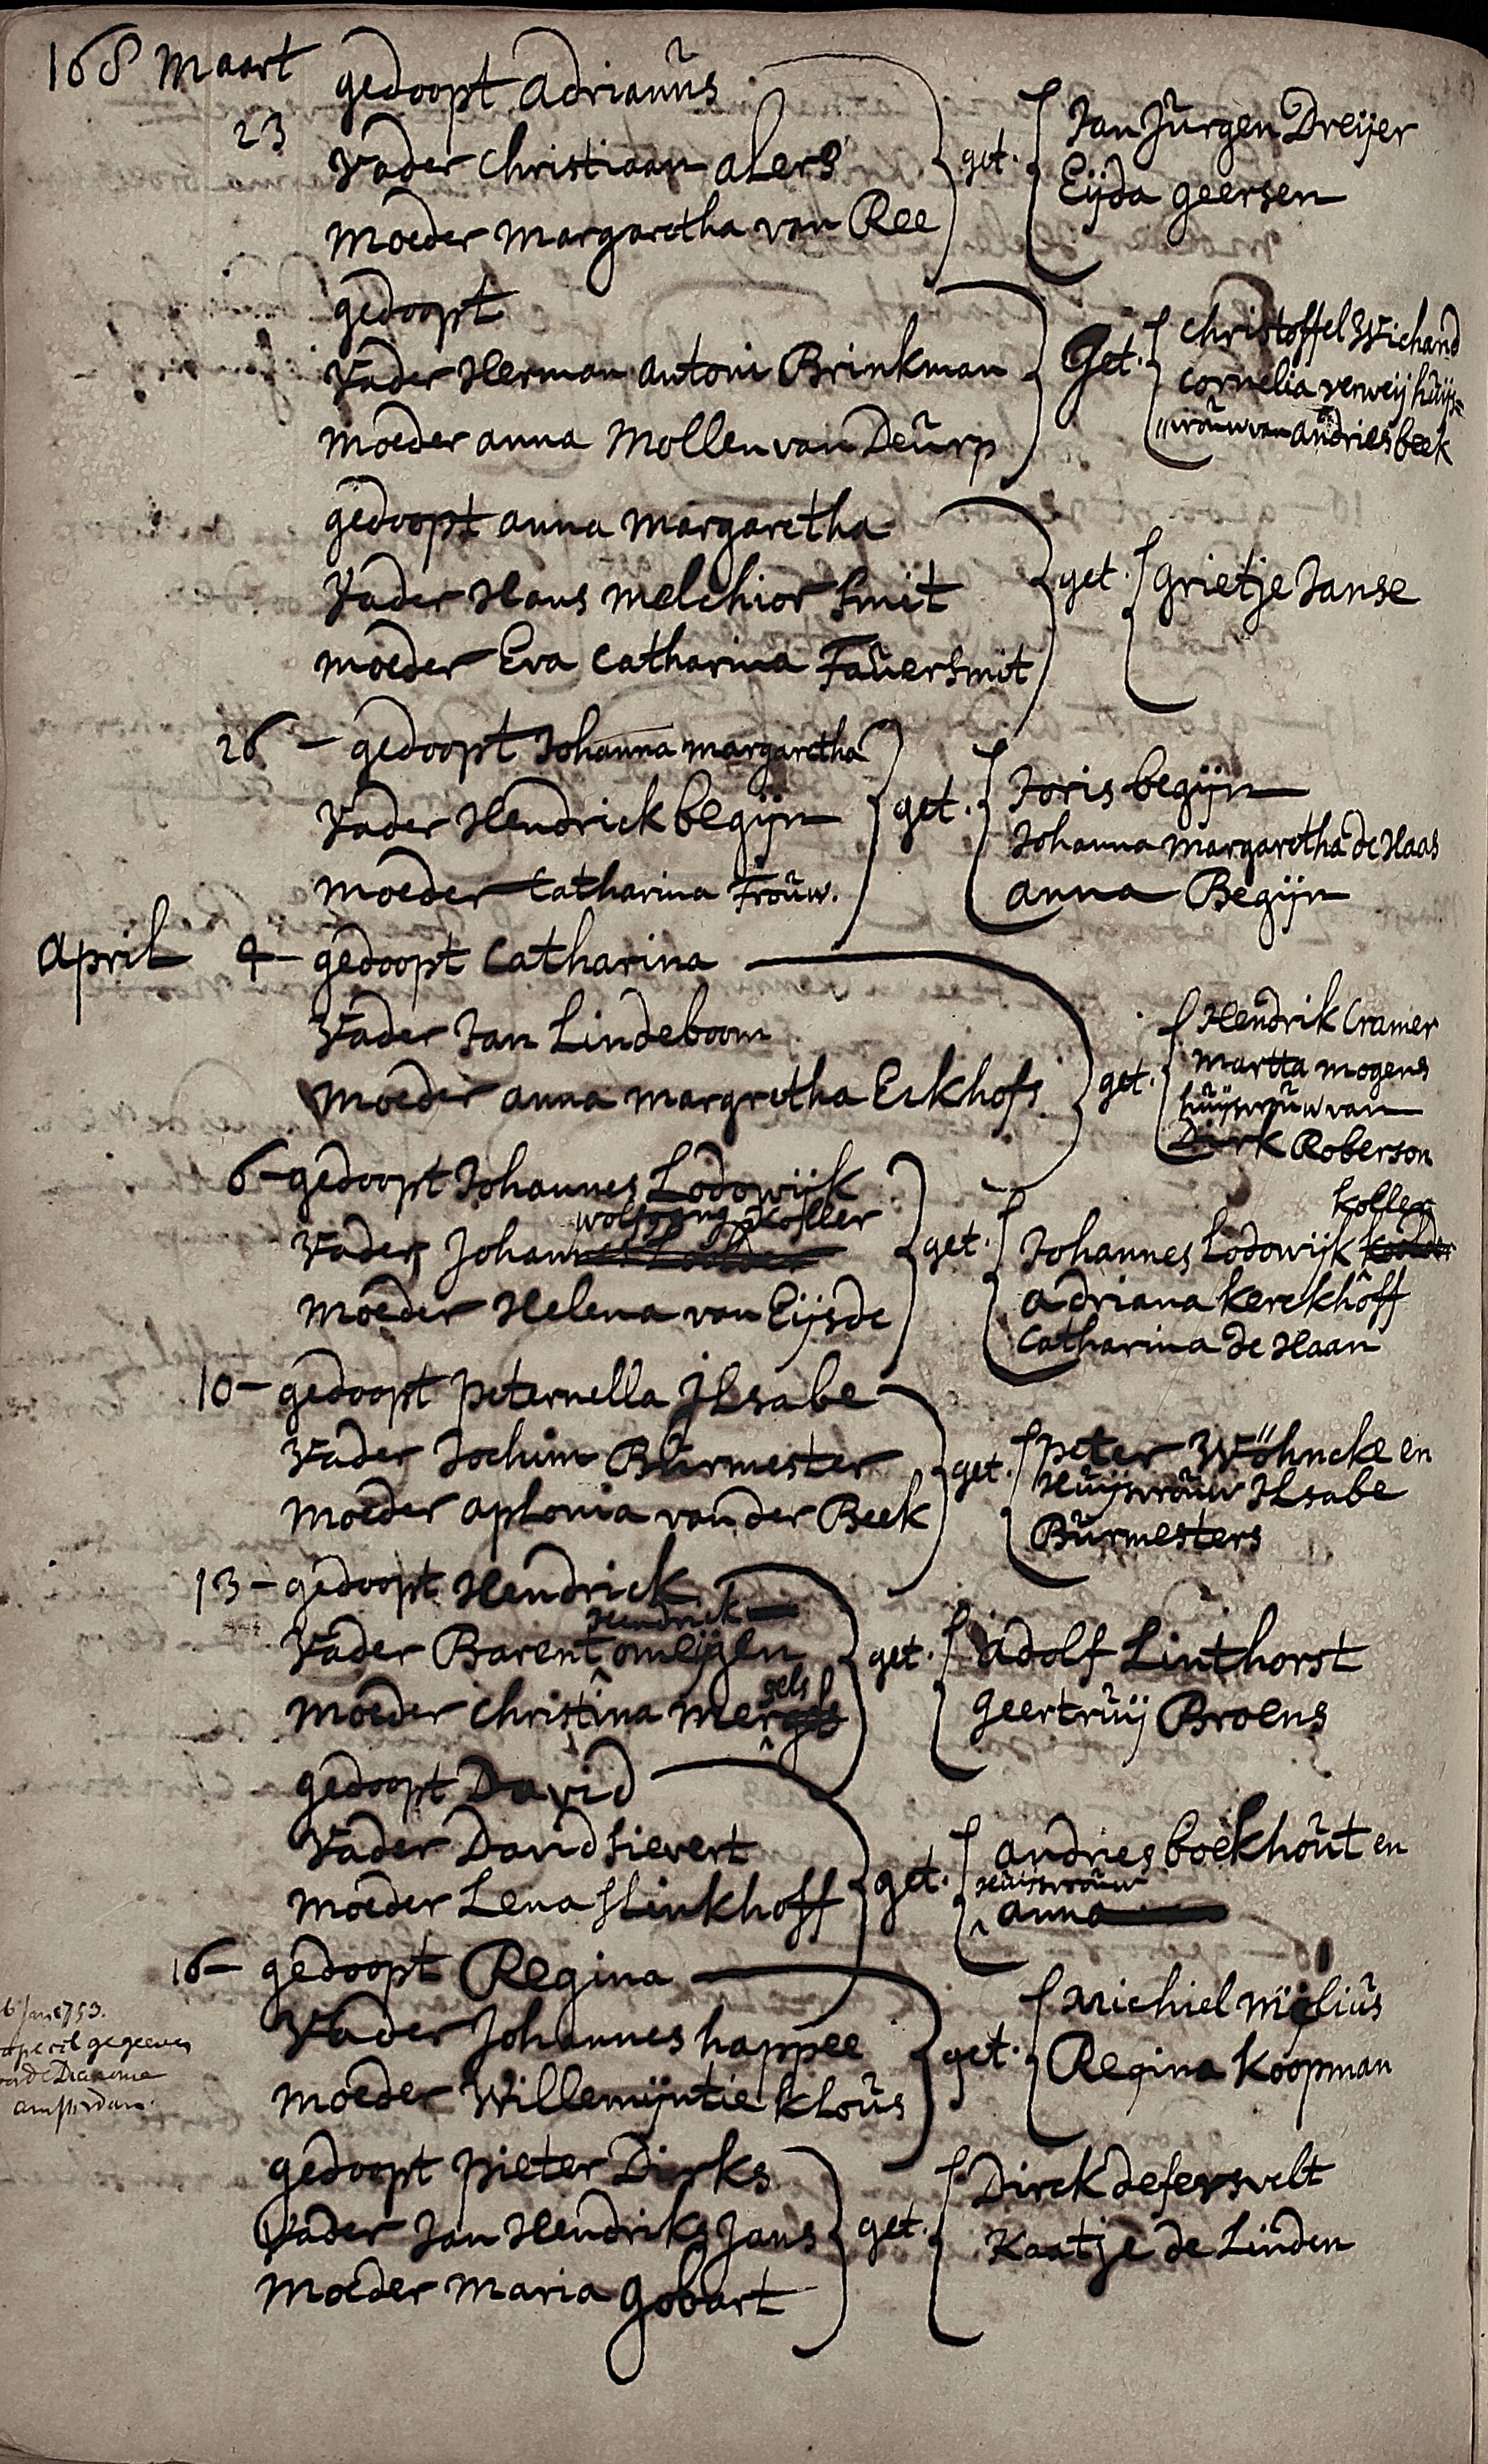 168 Maart
23
gedoopt Adrianus
Vader Christiaan Alers
Moeder Margaretha van Ree
get.
Jan Jurgen Dreijer
Eijda geersen
gedoopt
Vader Herman Antoni Brinkman
Moeder Anna Mollen van Deurp
Get.
Christoffel Wichand
Cornelia verweij huijs=
"vrouw van Andries beek
gedoopt Anna Margaretha
Vader Hans Melchior Smit
Moeder Eva Catharina Fauersmit
get.
Grietje Janse
26 - gedoopt Johanna Margaretha
Vader Hendrick begijn
Moeder Catharina Frouw.
get.
Joris begijn
Johanna Margaretha de Haas
Anna Begijn
April 4 - gedoopt Catharina
Vader Jan Lindeboom
Moeder Anna Margretha Eckhofs
get.
Hendrik Cramer
Martta Mogens
huijsvrouw van
Dirk Roberson
6 - gedoopt Johannes Lodowijk
wolfgang Koller
Vader Johannes
Moeder Helena van Eijsde
get.
Koller
Johannes Lodowijk
Adriana Kerckhoff
Catharina de Haan
10 - gedoopt Peternella Jlsabe
Vader Jochim Burmester
Moeder Aplonia van der Beek
get.
Peter Wöhncke en
Huijsvrouw Jlsabe
Burmesters
13 - gedoopt Hendrick
Hendrick
Vader Barent omeijgen
gels
Moeder Christina Mer
get.
Adolf Linthorst
Geertruij Broens
gedoopt David
Vader David Sievert
Moeder Lena Slinkhoff
get.
Andries boekhout en
huijsvrouw
Anna
16 - gedoopt Regina
Vader Johannes happee
Moeder Willemijntie Klous
get.
Michiel Mijlius
Regina Koopman
6 Jan 1753.
gegeeven
Diaconie
amsterdam.
gedoopt Pieter Dirks
Vader Jan Hendriks Jans
Moeder Maria Gobart
get.
Dirck defersvelt
Kaatje de Linden